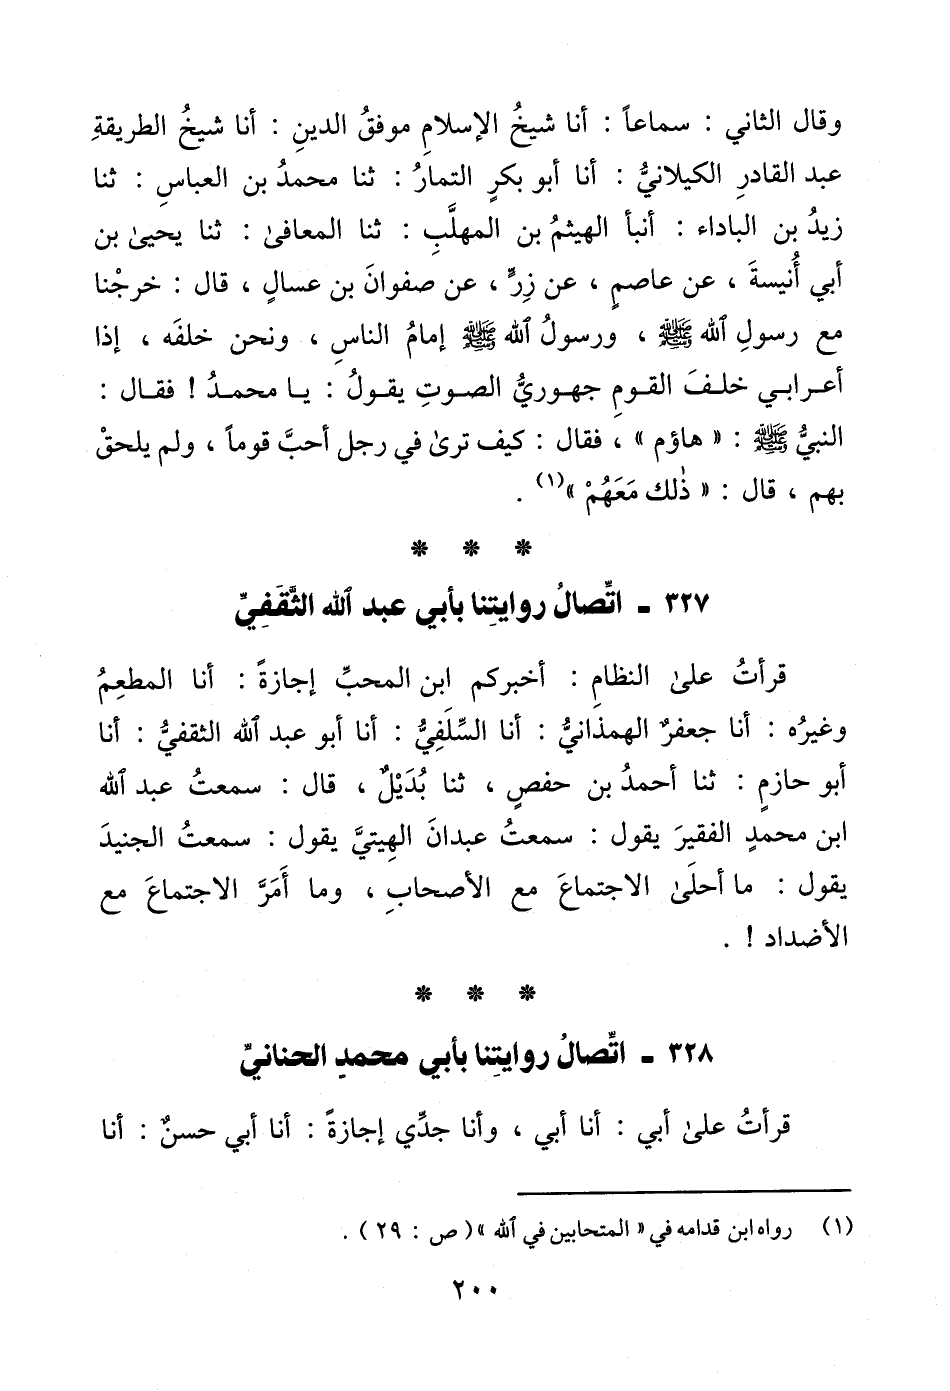 وقال الثاني : سماعاً : أنا شيخُ الإسلامِ موفقُ الدينِ : أنا شيخُ الطريقةِ
عبد القادرِ الكيلانيُّ : أنا أبو بكرٍ التمارُ : ثنا محمدُ بن العباسِ : ثنا
زيدُ بن الباداء : أنبأ الهيثمُ بن المهلَّبِ : ثنا المعافىٰ : ثنا يحيىٰ بن
أبي أُنيسةَ ، عن عاصمٍ ، عن زِرٍّ ، عن صفوانَ بن عسالٍ ، قال : خرجْنا
مع رسولِ الله ﷺ ، ورسولُ الله ﷺ إمامُ الناسِ ، ونحن خلفَه ، إذا
أعرابي خلفَ القومِ جهوريُّ الصوتِ يقولُ : يا محمدُ ! فقال :
النبيُّ ﷺ : « هاؤم » ، فقال : كيف ترىٰ في رجل أحبَّ قوماً ، ولم يلحقْ
بهم ، قال : « ذٰلك مَعَهُمْ »(١) .
* * *
٣٢٧ ـ اتِّصالُ روايتِنا بأبي عبد الله الثَّقَفِيِّ
قرأتُ علىٰ النظامِ : أخبركم ابن المحبِّ إجازةً : أنا المطعِمُ
وغيرُه : أنا جعفرٌ الهمذانيُّ : أنا السِّلَفِيُّ : أنا أبو عبد الله الثقفيُّ : أنا
أبو حازمٍ : ثنا أحمدُ بن حفصٍ ، ثنا بُدَيْلٌ ، قال : سمعتُ عبد الله
ابن محمدٍ الفقيرَ يقول : سمعتُ عبدانَ الهِيتيَّ يقول : سمعتُ الجنيدَ
يقول : ما أحلَىٰ الاجتماعَ مع الأصحابِ ، وما أَمَرَّ الاجتماعَ مع
الأضداد ! .
* * *
٣٢٨ ـ اتِّصالُ روايتِنا بأبي محمدٍ الحنانيِّ
قرأتُ علىٰ أبي : أنا أبي ، وأنا جدِّي إجازةً : أنا أبي حسنٌ : أنا
(١) رواه ابن قدامه في « المتحابين في الله » ( ص : ٢٩ ) .
٢٠٠